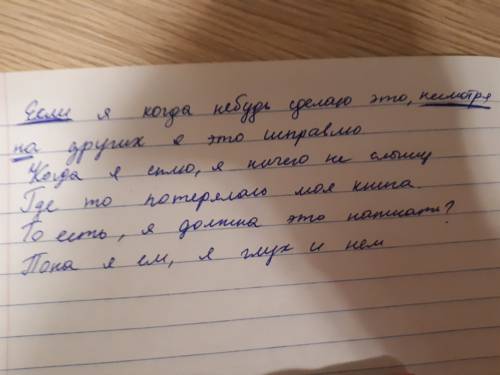 Если я когда нибудь сделаю это, несмотря
на других я это исправлю
Когда я сплю, я ничего не слышу
Где то потерялась моя книга.
То есть, я должна это написать?
Пока я ем, я глух и нем